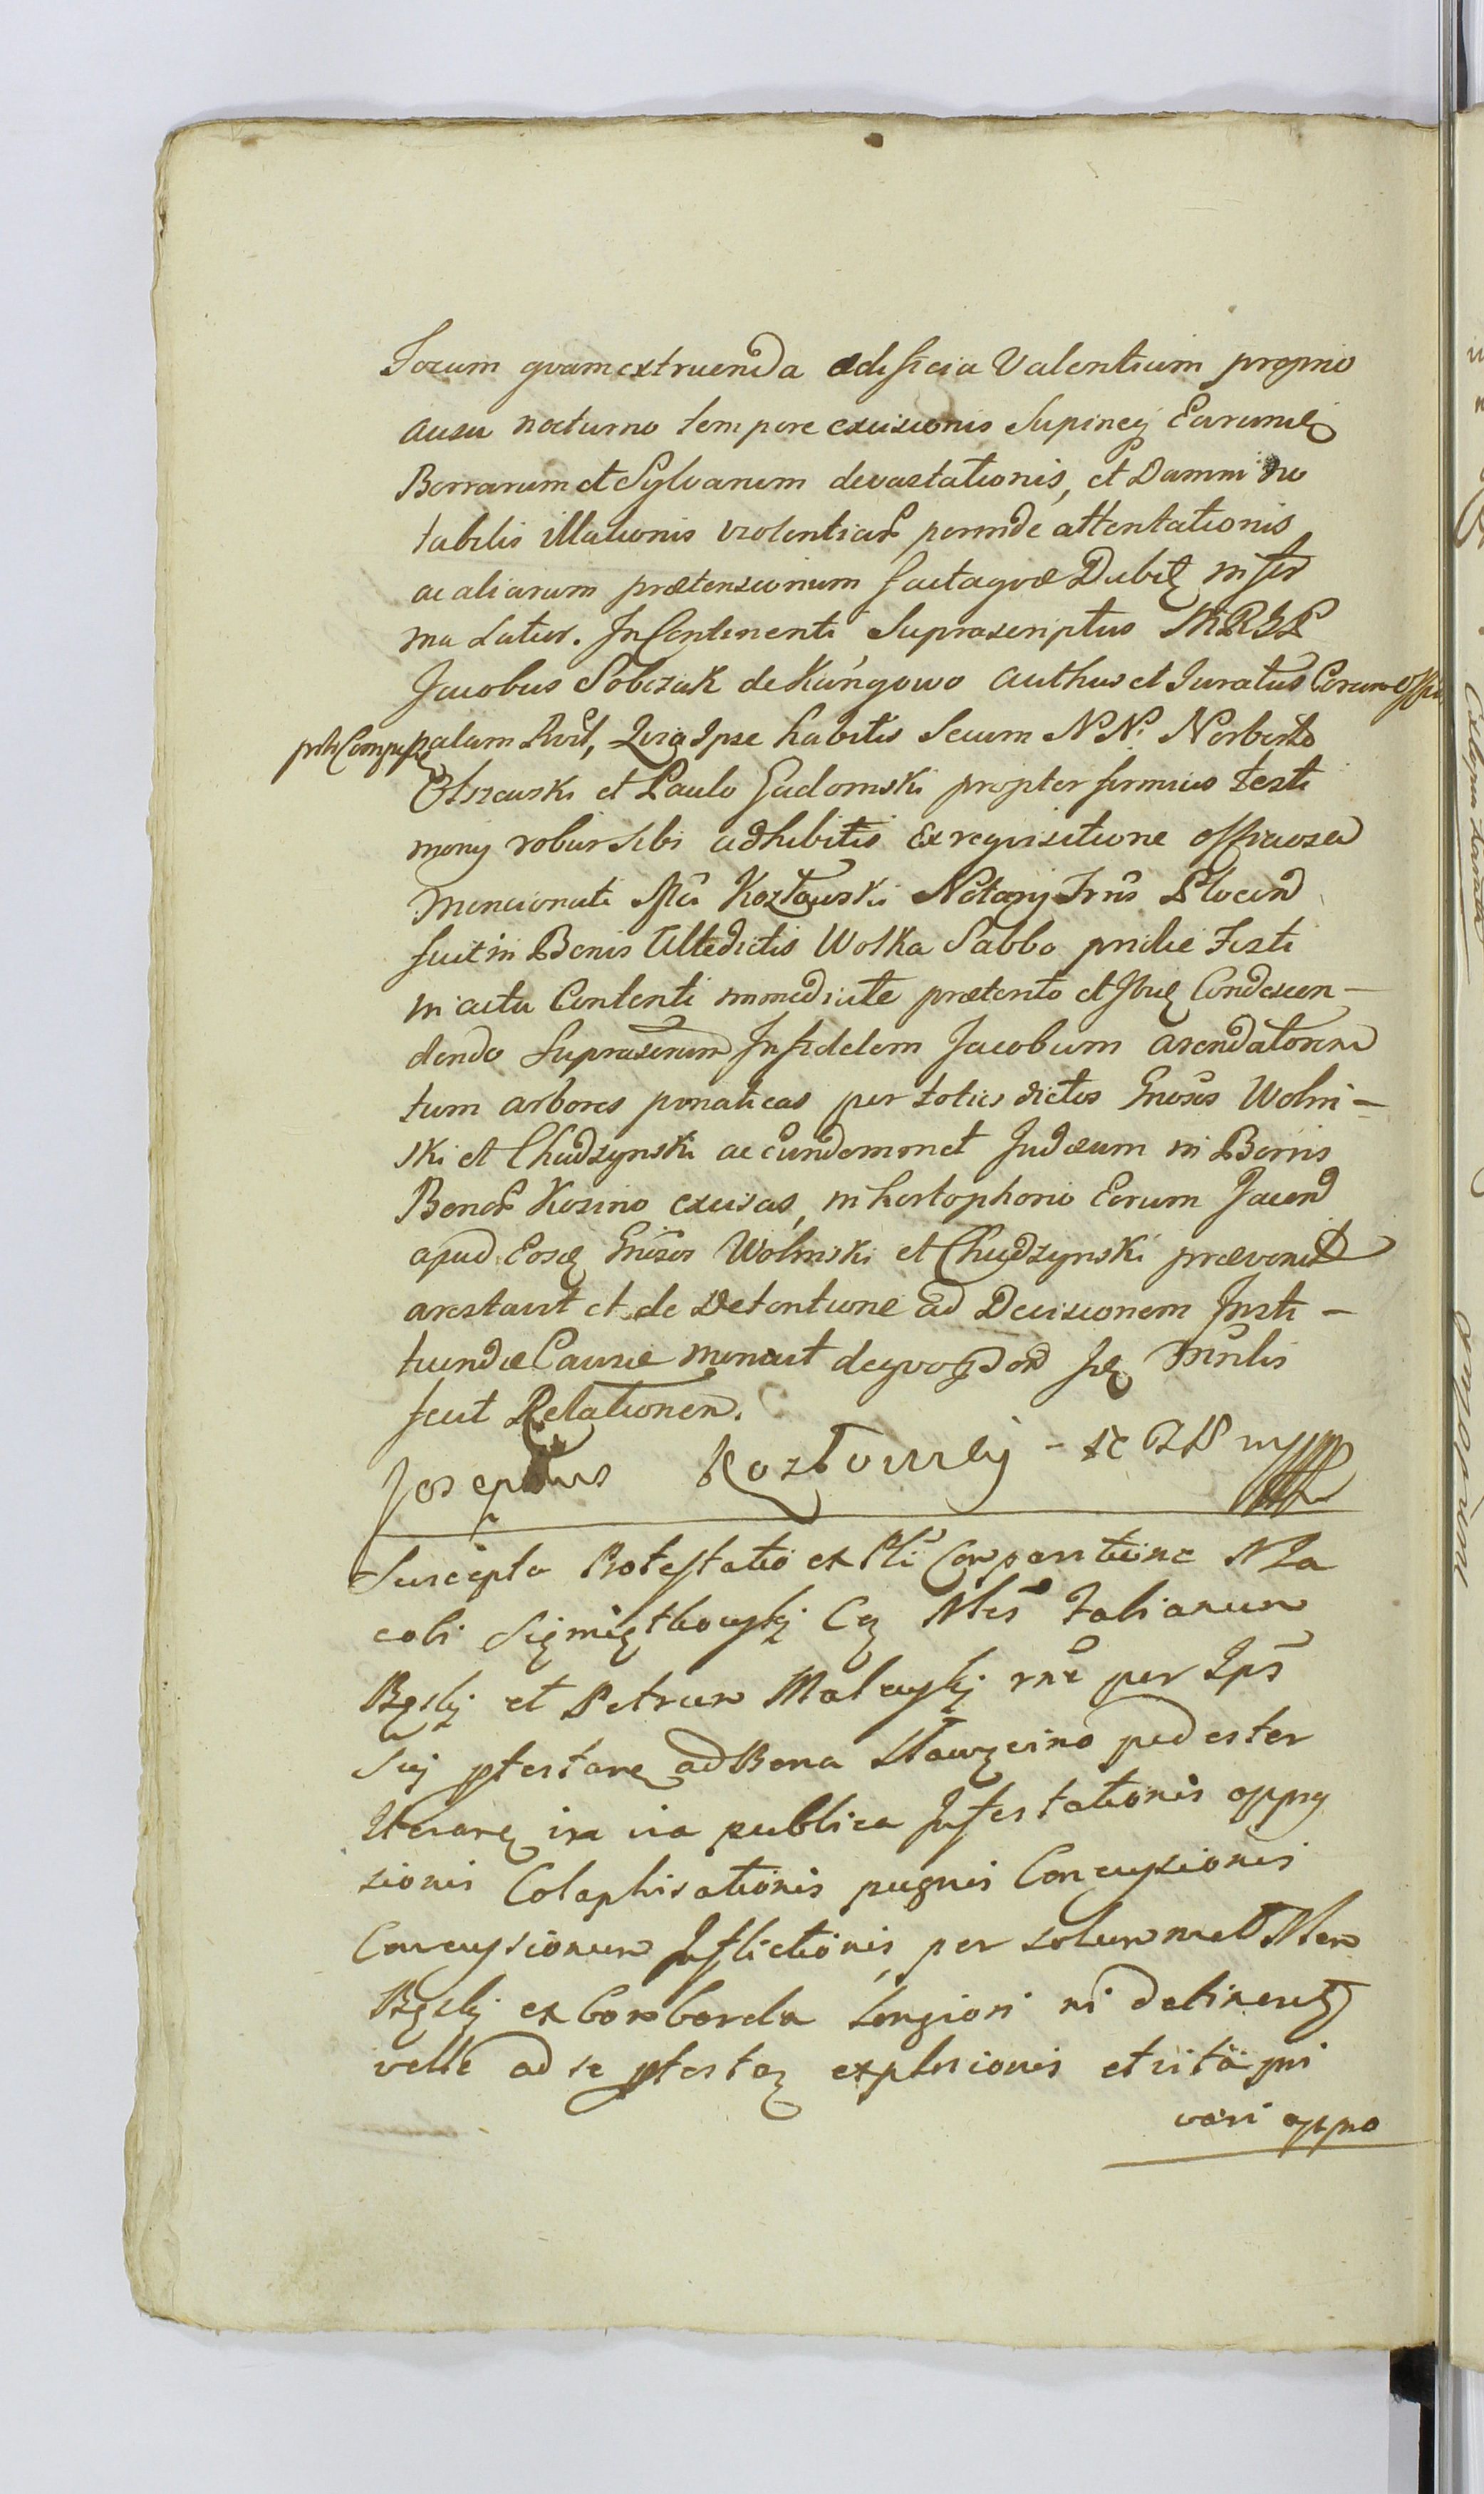 Forum quam extruenda ædificia Valentium proprio
ausu nocturno tempore excisionis Supiney Earumq
Borrarum et Sylvarum devastationis, et Damni no
tabilis illationis violentiar perinde attentationis
ac aliarum prætensionum factaque Dubit in for
ma Latius. In Continenti Suprascriptus MRGL
Jacobus Sobczak de Kangowo authus et Juratus Coram Offi
palam Rcvt, Quia Ipse habitis Secum NN. Norberto
Olszewski et Paulo Gadomski propter firmius Testi
mony robur sibi adhibitis ex requisitione officiosa
mencionati Mci Kozłowski Notarij Trris Plocen
fuit in Bonis Ultedictis Wolka Sabbo pridie Festi
in actu Contenti immediate prætento et Ibiq Condescen-
dendo Suprascrium Infidelem Jacobum arendatorem
tum arbores ponaticas per toties dictos Gnosos Wolin-
ski et Chudzynski ac eundemmet Judæum in Borris
Bonor Kozino excisas, in hortophorio Eorum Jacend
apud Eosq Gnosos Wolinski et Chudzynski prævenit
arestavit et de Detentione ad Decisionem Insti-
tuendæ Causæ monuit de quo Idem Mrlis
fecit Relationem.
Josephus Kozłowskj - mpp
Suscepta Protestatio ex Pti Comparitione N Ja
cobi Sięmiętkowskj Cq Nles Fabianum
Bęskj et Petrum Malewskj rne per Ips
Suj ptestare ad Bona Sławęcino pedester
Iterare in via publica Infestationis oppres
sionis Colaphisationis pugnis Concussionis
Concussionum Inflictionis, per solummet Nlem
Bęskj ex bombarda longiori ni detineret
velle ad se ptestaz explosionis et vita pri
vari oppno